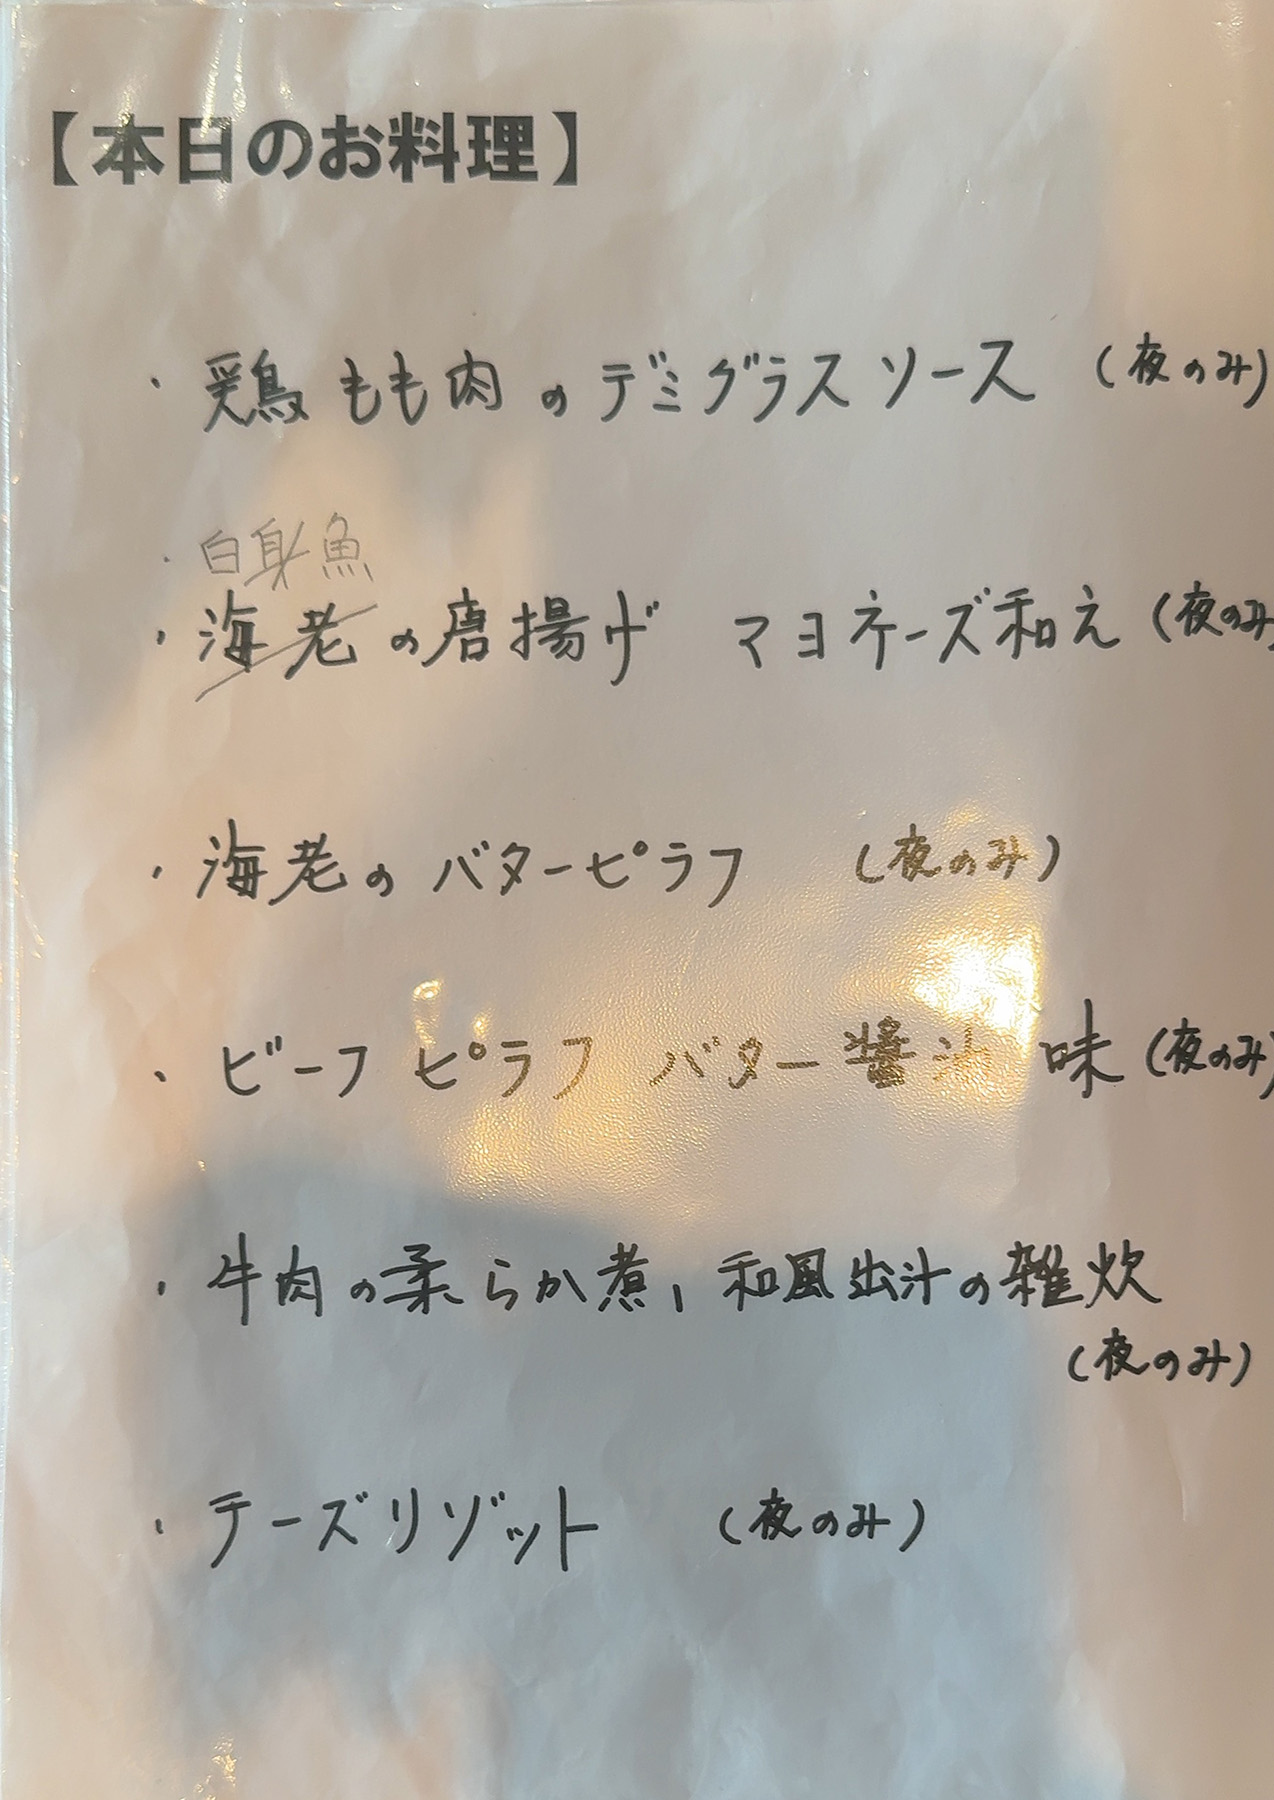 【本日のお料理】
・鶏もも肉のデミグラスソース (夜のみ)
・白身魚
・海老の唐揚げ マヨネーズ和え (夜のみ
・海老のバターピラフ (夜のみ)
・ビーフピラフ バター醤油味 (夜のみ)
・牛肉の柔らか煮、和風出汁の雑炊
(夜のみ)
・チーズリゾット (夜のみ)